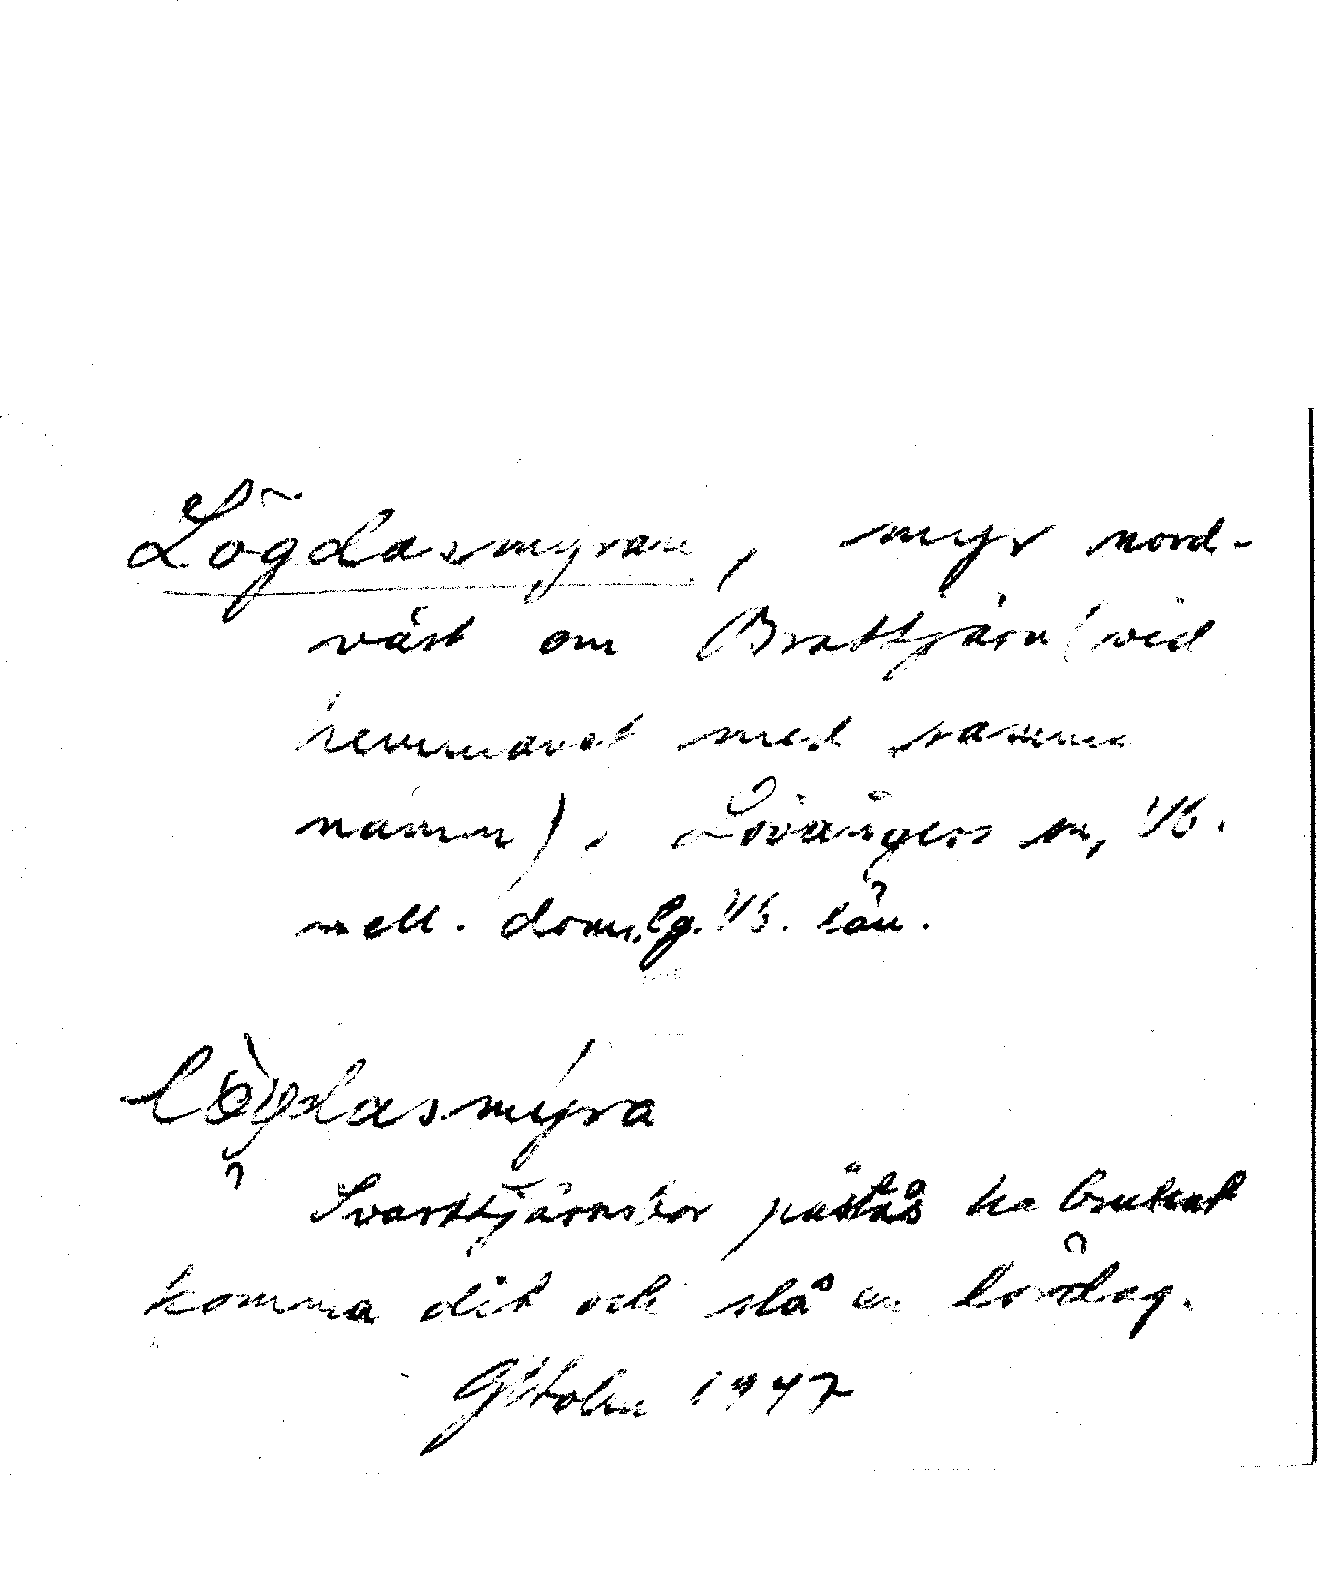 Lögdasmyran, myr nord-
väst om Brattjärn (vid
hemmanet med samma
namn), Lövångers sn, Vb.
mell. doms.lg. Vb. län.
lògdasmýra
Svarttjärnsbor påstås ha brukat
komma dit och slå en lördag.
1947